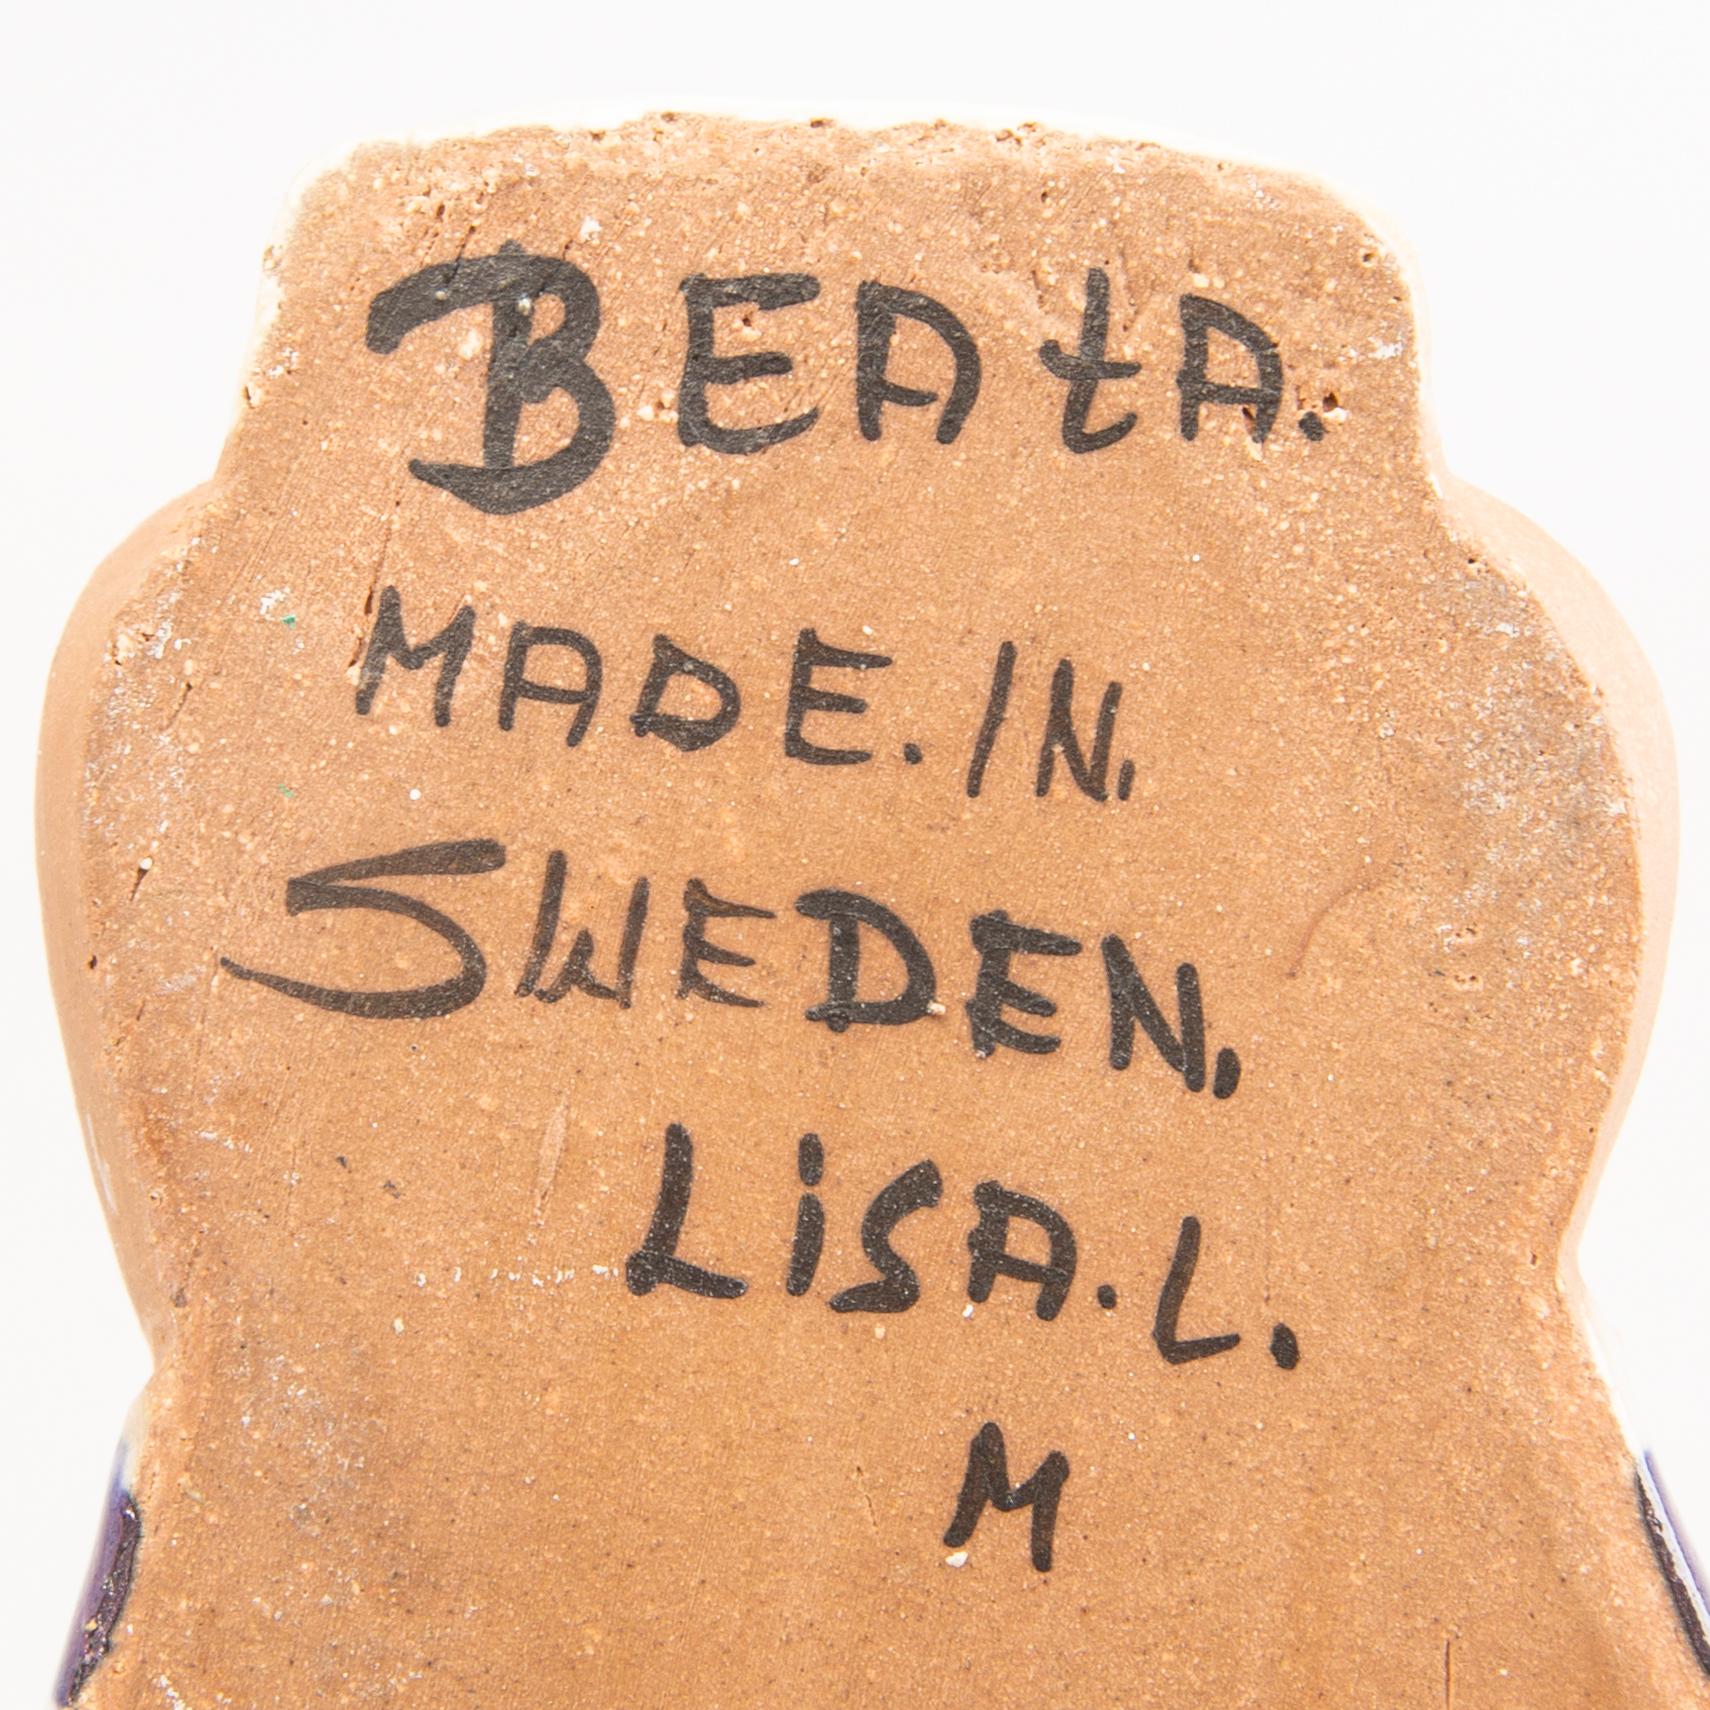 BEAtA.
MADE. IN.
SWEDEN.
LiSA. L.
M